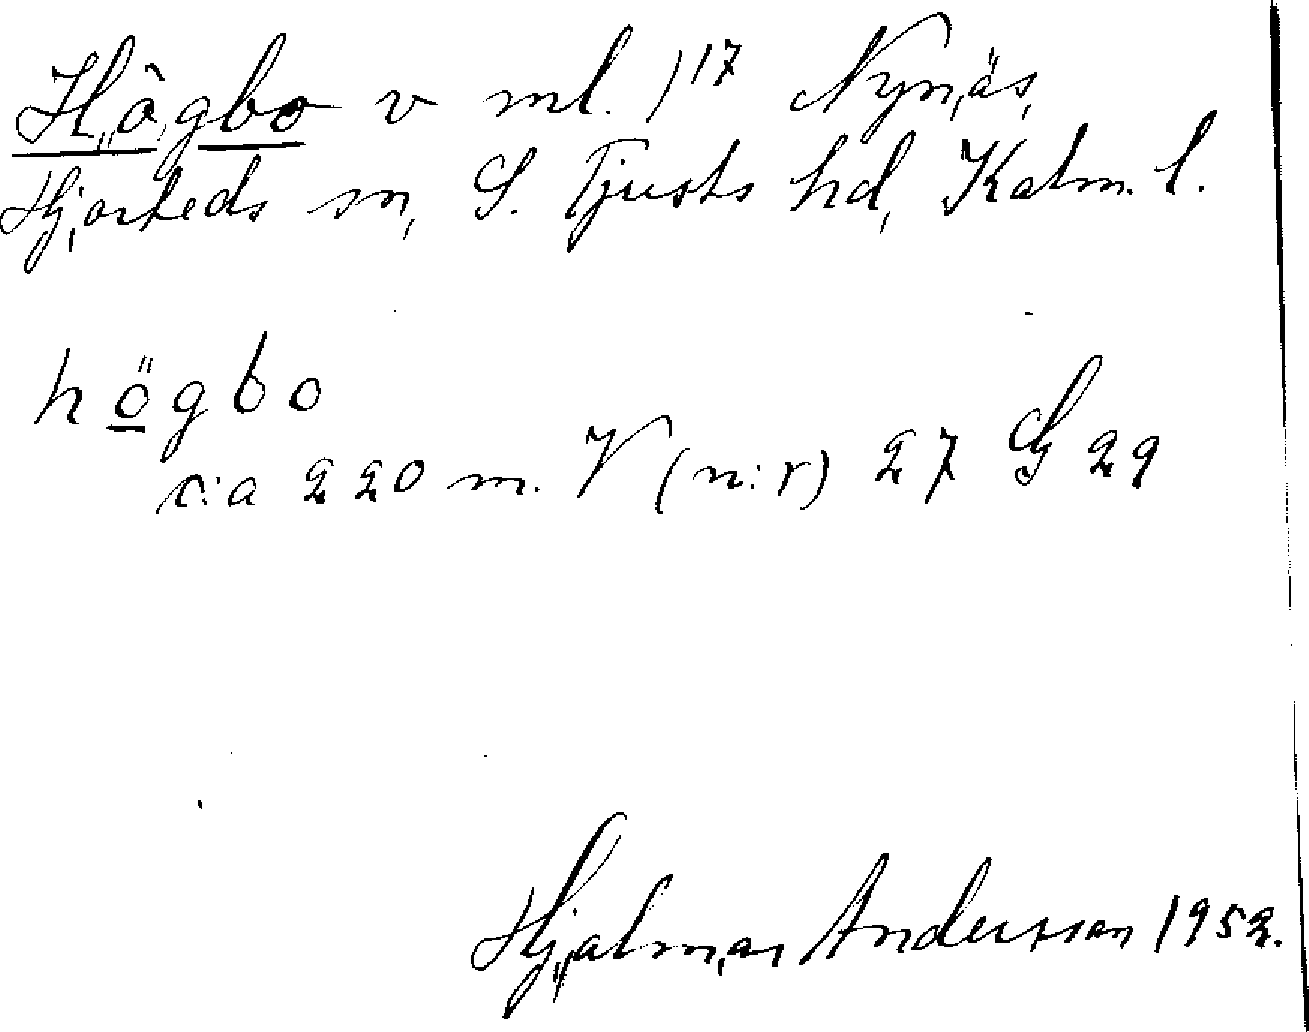 Högbo v ml. 1¹⁷ Nynäs,
Hjorteds sn, S. Tjusts hd, Kalm. l.
högbo
c:a 220 m. V (n:r) 27 G 29
Hjalmar Andersson 1952.